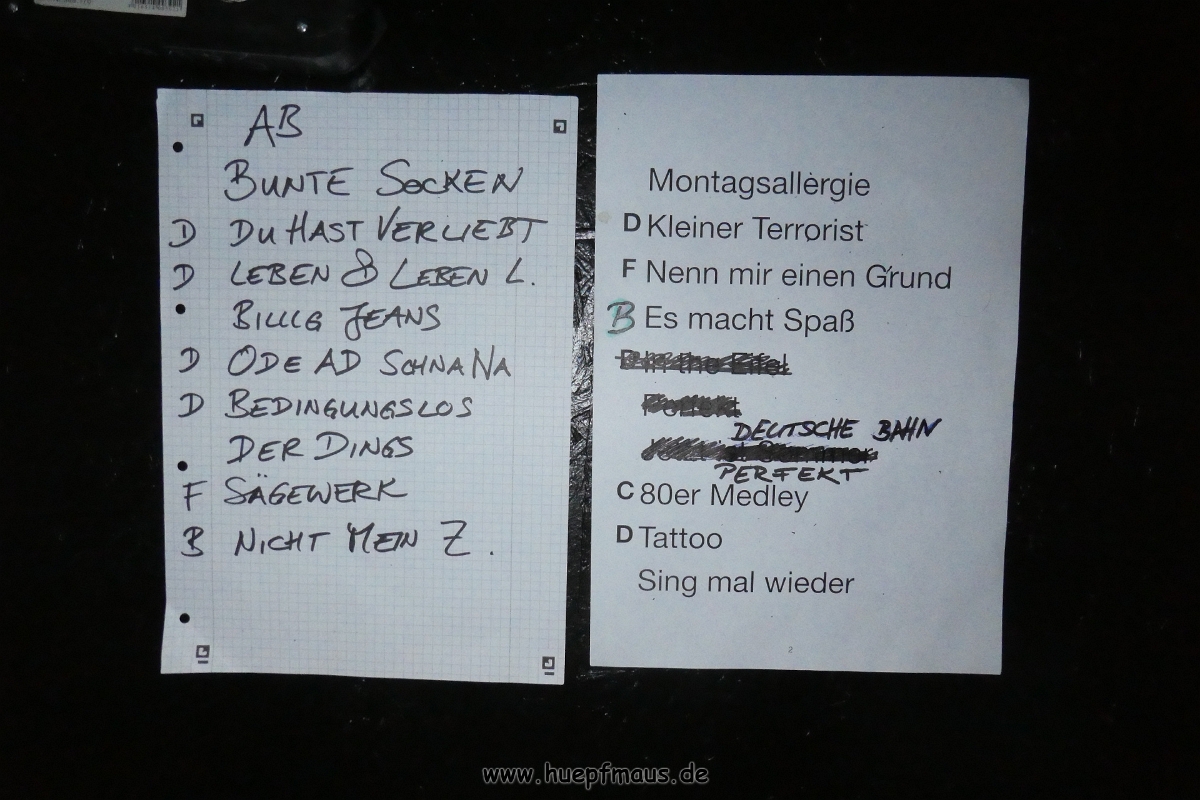 AB
BUNTE SOCKEN
D DU HAST VERLIEBT
D LEBEN & LEBEN L.
BILLIG JEANS
D ODE AD SCHNANA
D BEDINGUNGSLOS
DER DINGS
F SÄGEWERK
B NICHT MEIN Z.
Montagsallergie
D Kleiner Terrorist
F Nenn mir einen Grund
B Es macht Spaß
in the Eifel
Perfekt
DEUTSCHE BAHN
PERFEKT
C 80er Medley
D Tattoo
Sing mal wieder
2
www.huepfmaus.de